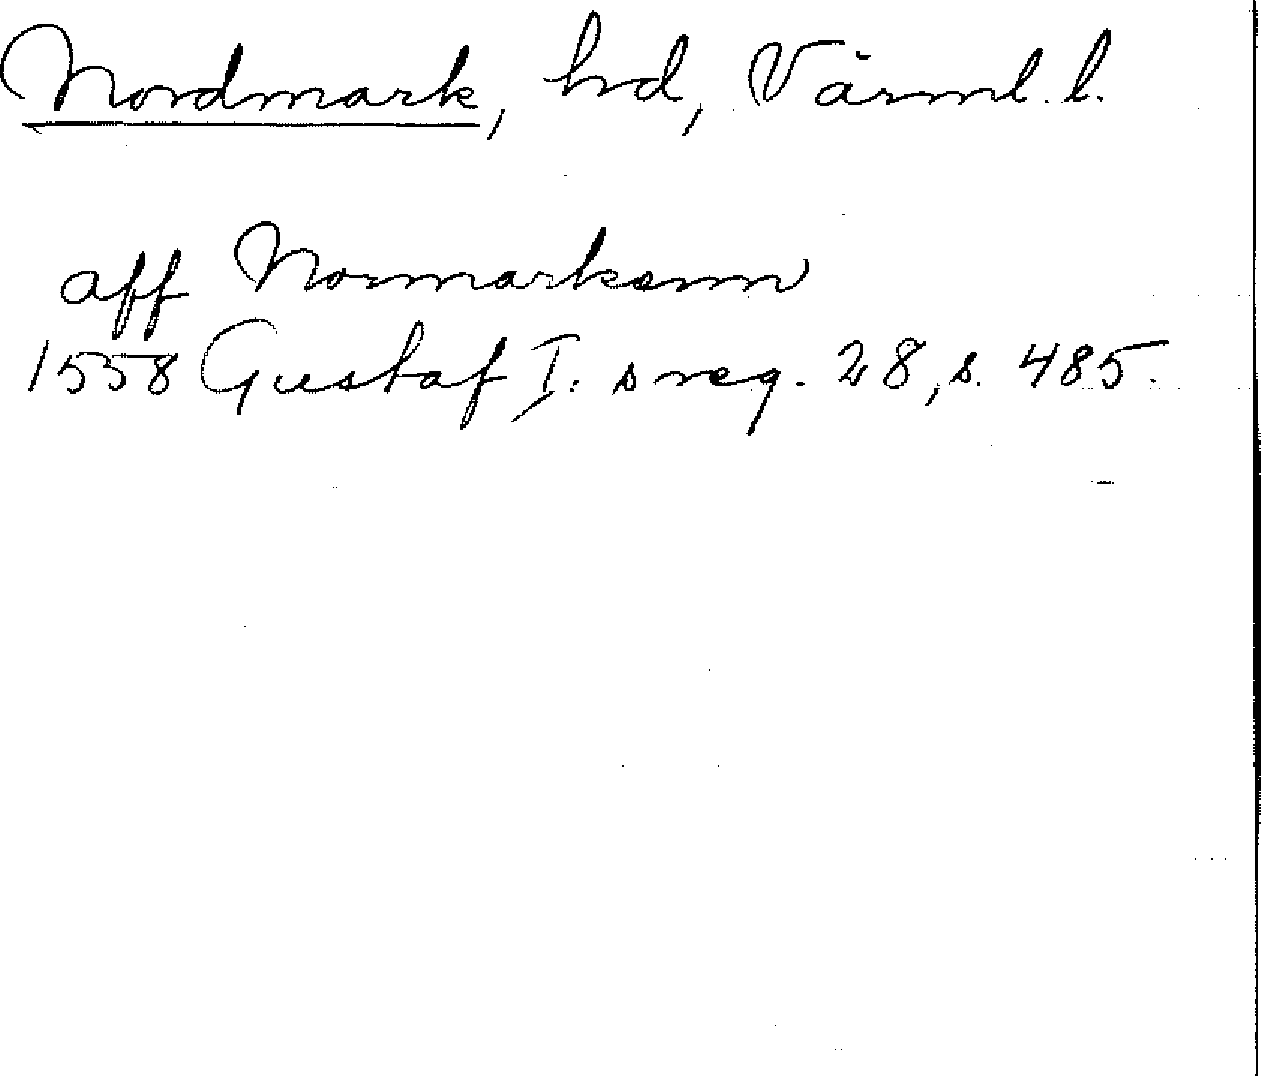 Nordmark, hd, Värml. l.
aff Normarkenn
1558 Gustaf I. s reg. 28, s. 485.